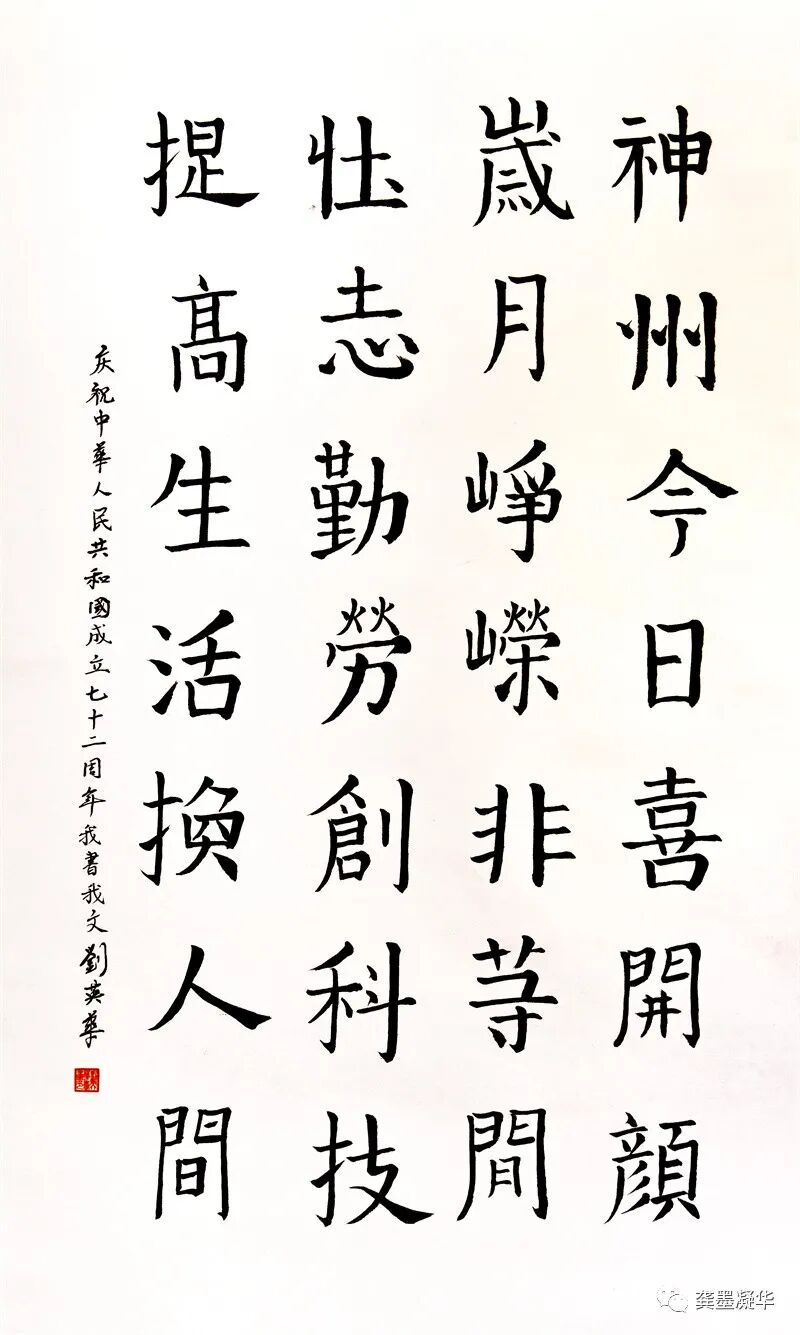 神州今日喜開顔
歲月崢嶸非等閒
壮志勤勞創科技
提高生活換人間
庆祝中華人民共和國成立七十二周年我書我文劉英華
龚墨凝华